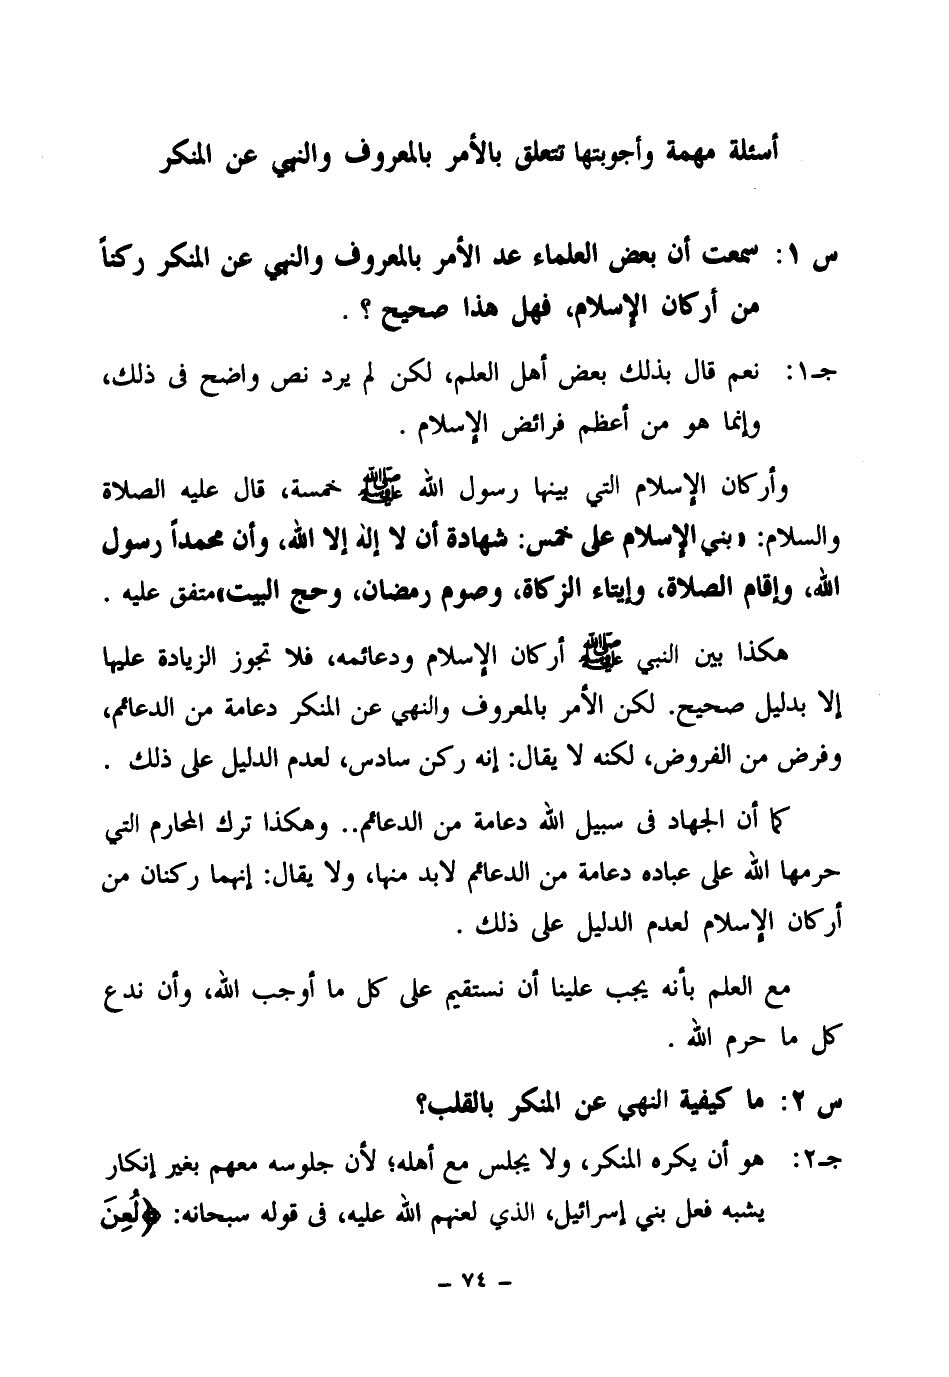 أسئلة مهمة وأجوبتها تتعلق بالأمر بالمعروف والنهي عن المنكر
س ١: سمعت أن بعض العلماء عد الأمر بالمعروف والنهي عن المنكر ركناً
من أركان الإسلام، فهل هذا صحيح ؟ .
جـ١: نعم قال بذلك بعض أهل العلم، لكن لم يرد نص واضح فى ذلك،
وإنما هو من أعظم فرائض الإسلام .
وأركان الإسلام التي بينها رسول الله ﷺ خمسة، قال عليه الصلاة
والسلام: «بني الإسلام على خمس: شهادة أن لا إله إلا الله، وأن محمداً رسول
الله، وإقام الصلاة، وإيتاء الزكاة، وصوم رمضان، وحج البيت»متفق عليه .
هكذا بين النبي ﷺ أركان الإسلام ودعائمه، فلا تجوز الزيادة عليها
إلا بدليل صحيح. لكن الأمر بالمعروف والنهي عن المنكر دعامة من الدعائم،
وفرض من الفروض، لكنه لا يقال: إنه ركن سادس، لعدم الدليل على ذلك .
كما أن الجهاد فى سبيل الله دعامة من الدعائم.. وهكذا ترك المحارم التي
حرمها الله على عباده دعامة من الدعائم لابد منها، ولا يقال: إنهما ركنان من
أركان الإسلام لعدم الدليل على ذلك .
مع العلم بأنه يجب علينا أن نستقيم على كل ما أوجب الله، وأن ندع
كل ما حرم الله .
س ٢: ما كيفية النهي عن المنكر بالقلب؟
جـ٢: هو أن يكره المنكر، ولا يجلس مع أهله؛ لأن جلوسه معهم بغير إنكار
يشبه فعل بني إسرائيل، الذي لعنهم الله عليه، فى قوله سبحانه: ﴿لُعِنَ
- ٧٤ -